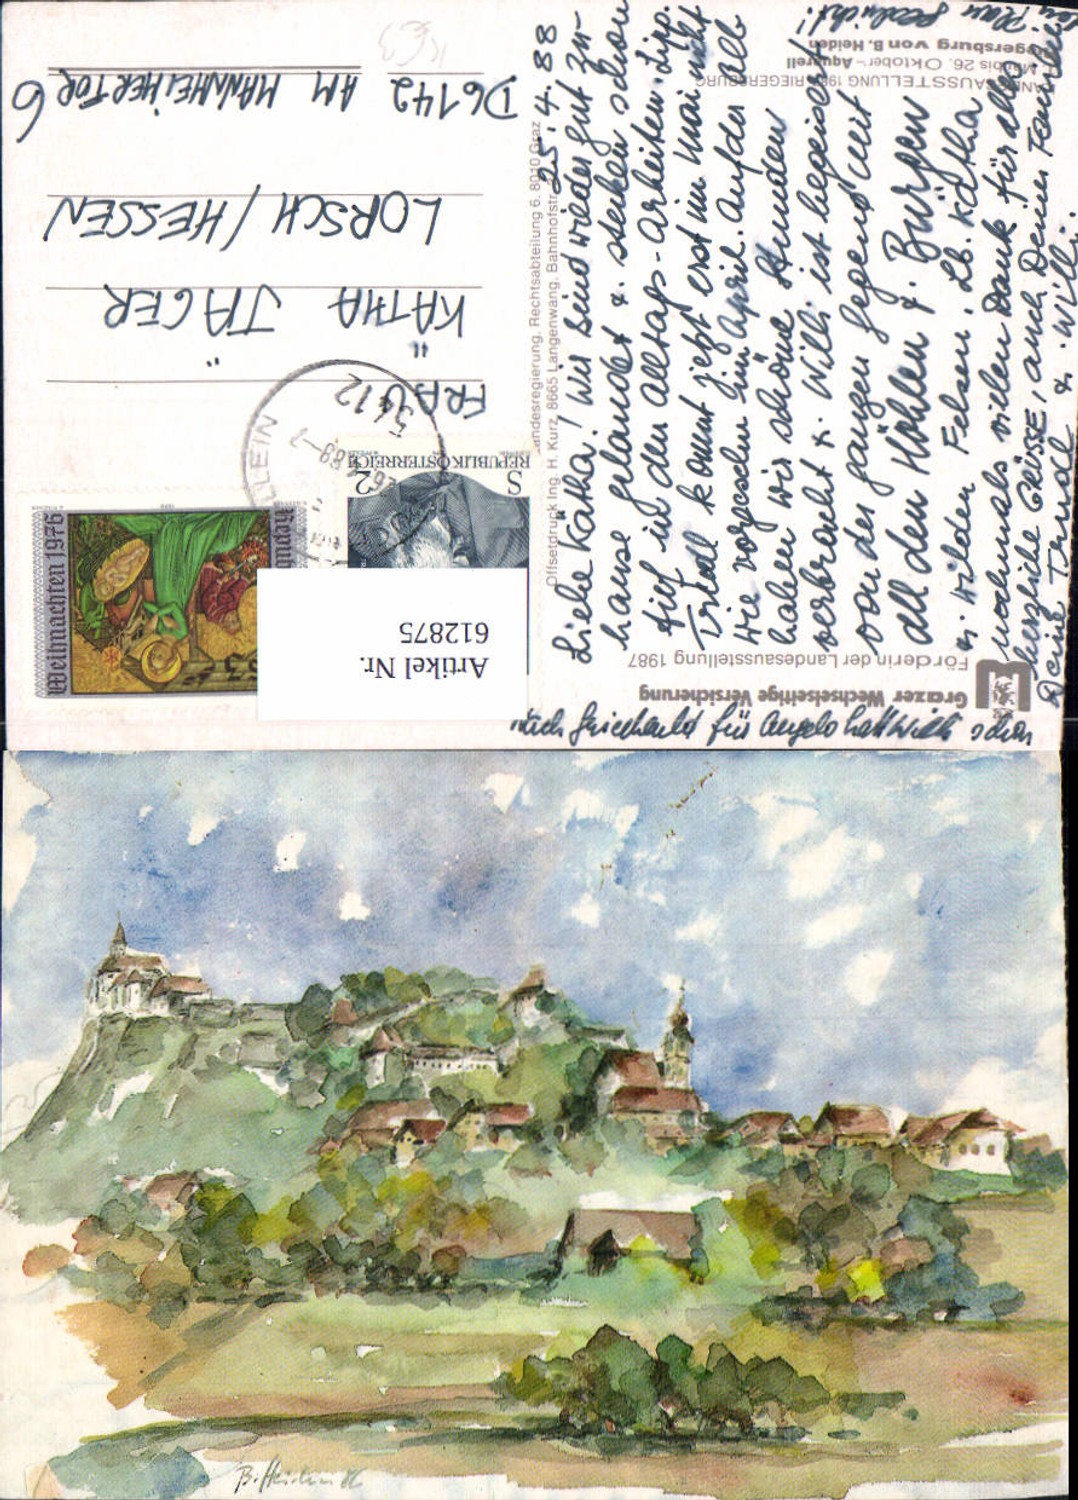 25.4.88
Liebe Kätha! Wir sind wieder gut zu-
hause gelandet u. stecken schon
tief in den Alltags-Arbeiten. Lipp.
Trudl kommt jetzt erst im Mai nicht
wie vorgesehen im April. Auf der Alb
haben wir schöne Stunden
verbracht u. Willi ist begeistert
von der ganzen Gegend mit
all den Höhlen u. Burgen
u. wilden Felsen. Lb. Kätha
nochmals vielen Dank für alles
herzliche GRÜSSE, auch Deiner Familie
Deine Trudl u. Willi.
Plan gezeichnet!
für Angelo hat Willi schon
LANDESAUSSTELLUNG 1987 RIEGERSBURG
Mai bis 26. Oktober – Aquarell
Riegersburg von B. Heiden
Grazer Wechselseitige Versicherung
Förderin der Landesausstellung 1987
Landesregierung, Rechtsabteilung 6, 8010 Graz
Offsetdruck Ing. H. Kurz, 8665 Langenwang, Bahnhofstr.
REPUBLIK ÖSTERREICH
S 2
Weihnachten 1976
Republik
3
KLEIN
5412
FRAU
KÄTHA JÄGER
LORSCH/HESSEN
D6142 AM MANNHEIMERTOR 6
Artikel Nr.
612875
B. Heiden 86